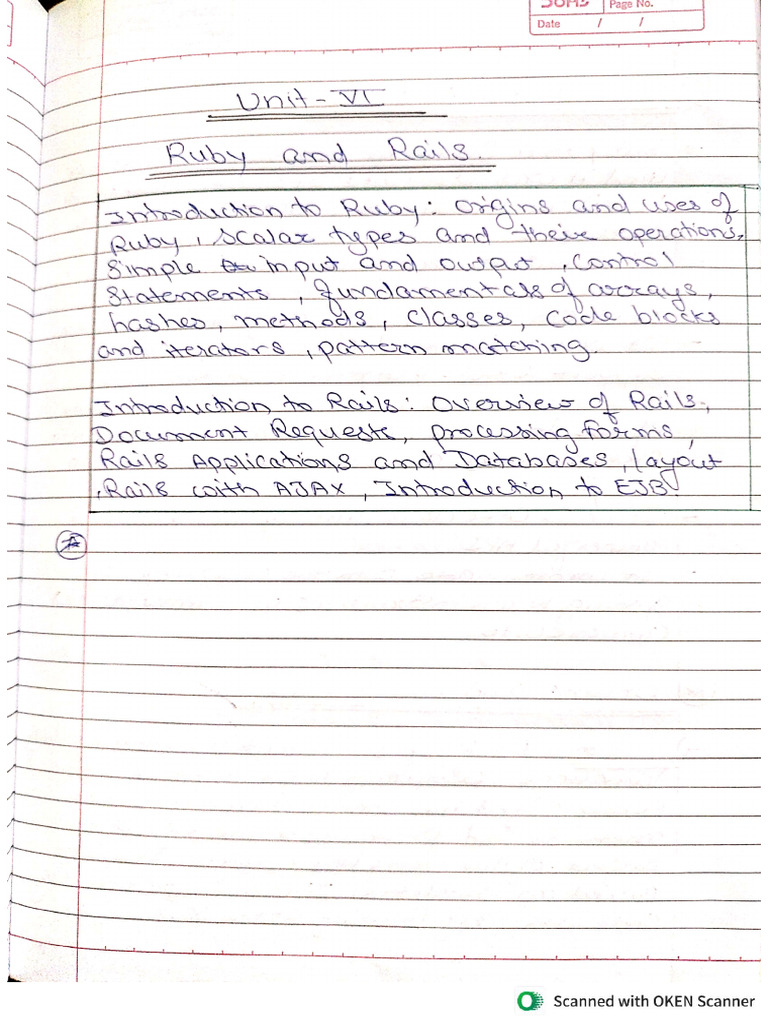 SOMS Page No.
Date / /
Unit - VI
Ruby and Rails.
Introduction to Ruby: Origins and uses of
Ruby, scalar types and their operations,
Simple input and output, Control
Statements, fundamentals of arrays,
hashes, methods, classes, code blocks
and iterators, pattern matching.
Introduction to Rails: Overview of Rails,
Document Requests, processing forms,
Rails Applications and Databases, Layout
,Rails with AJAX, Introduction to EJB
Scanned with OKEN Scanner